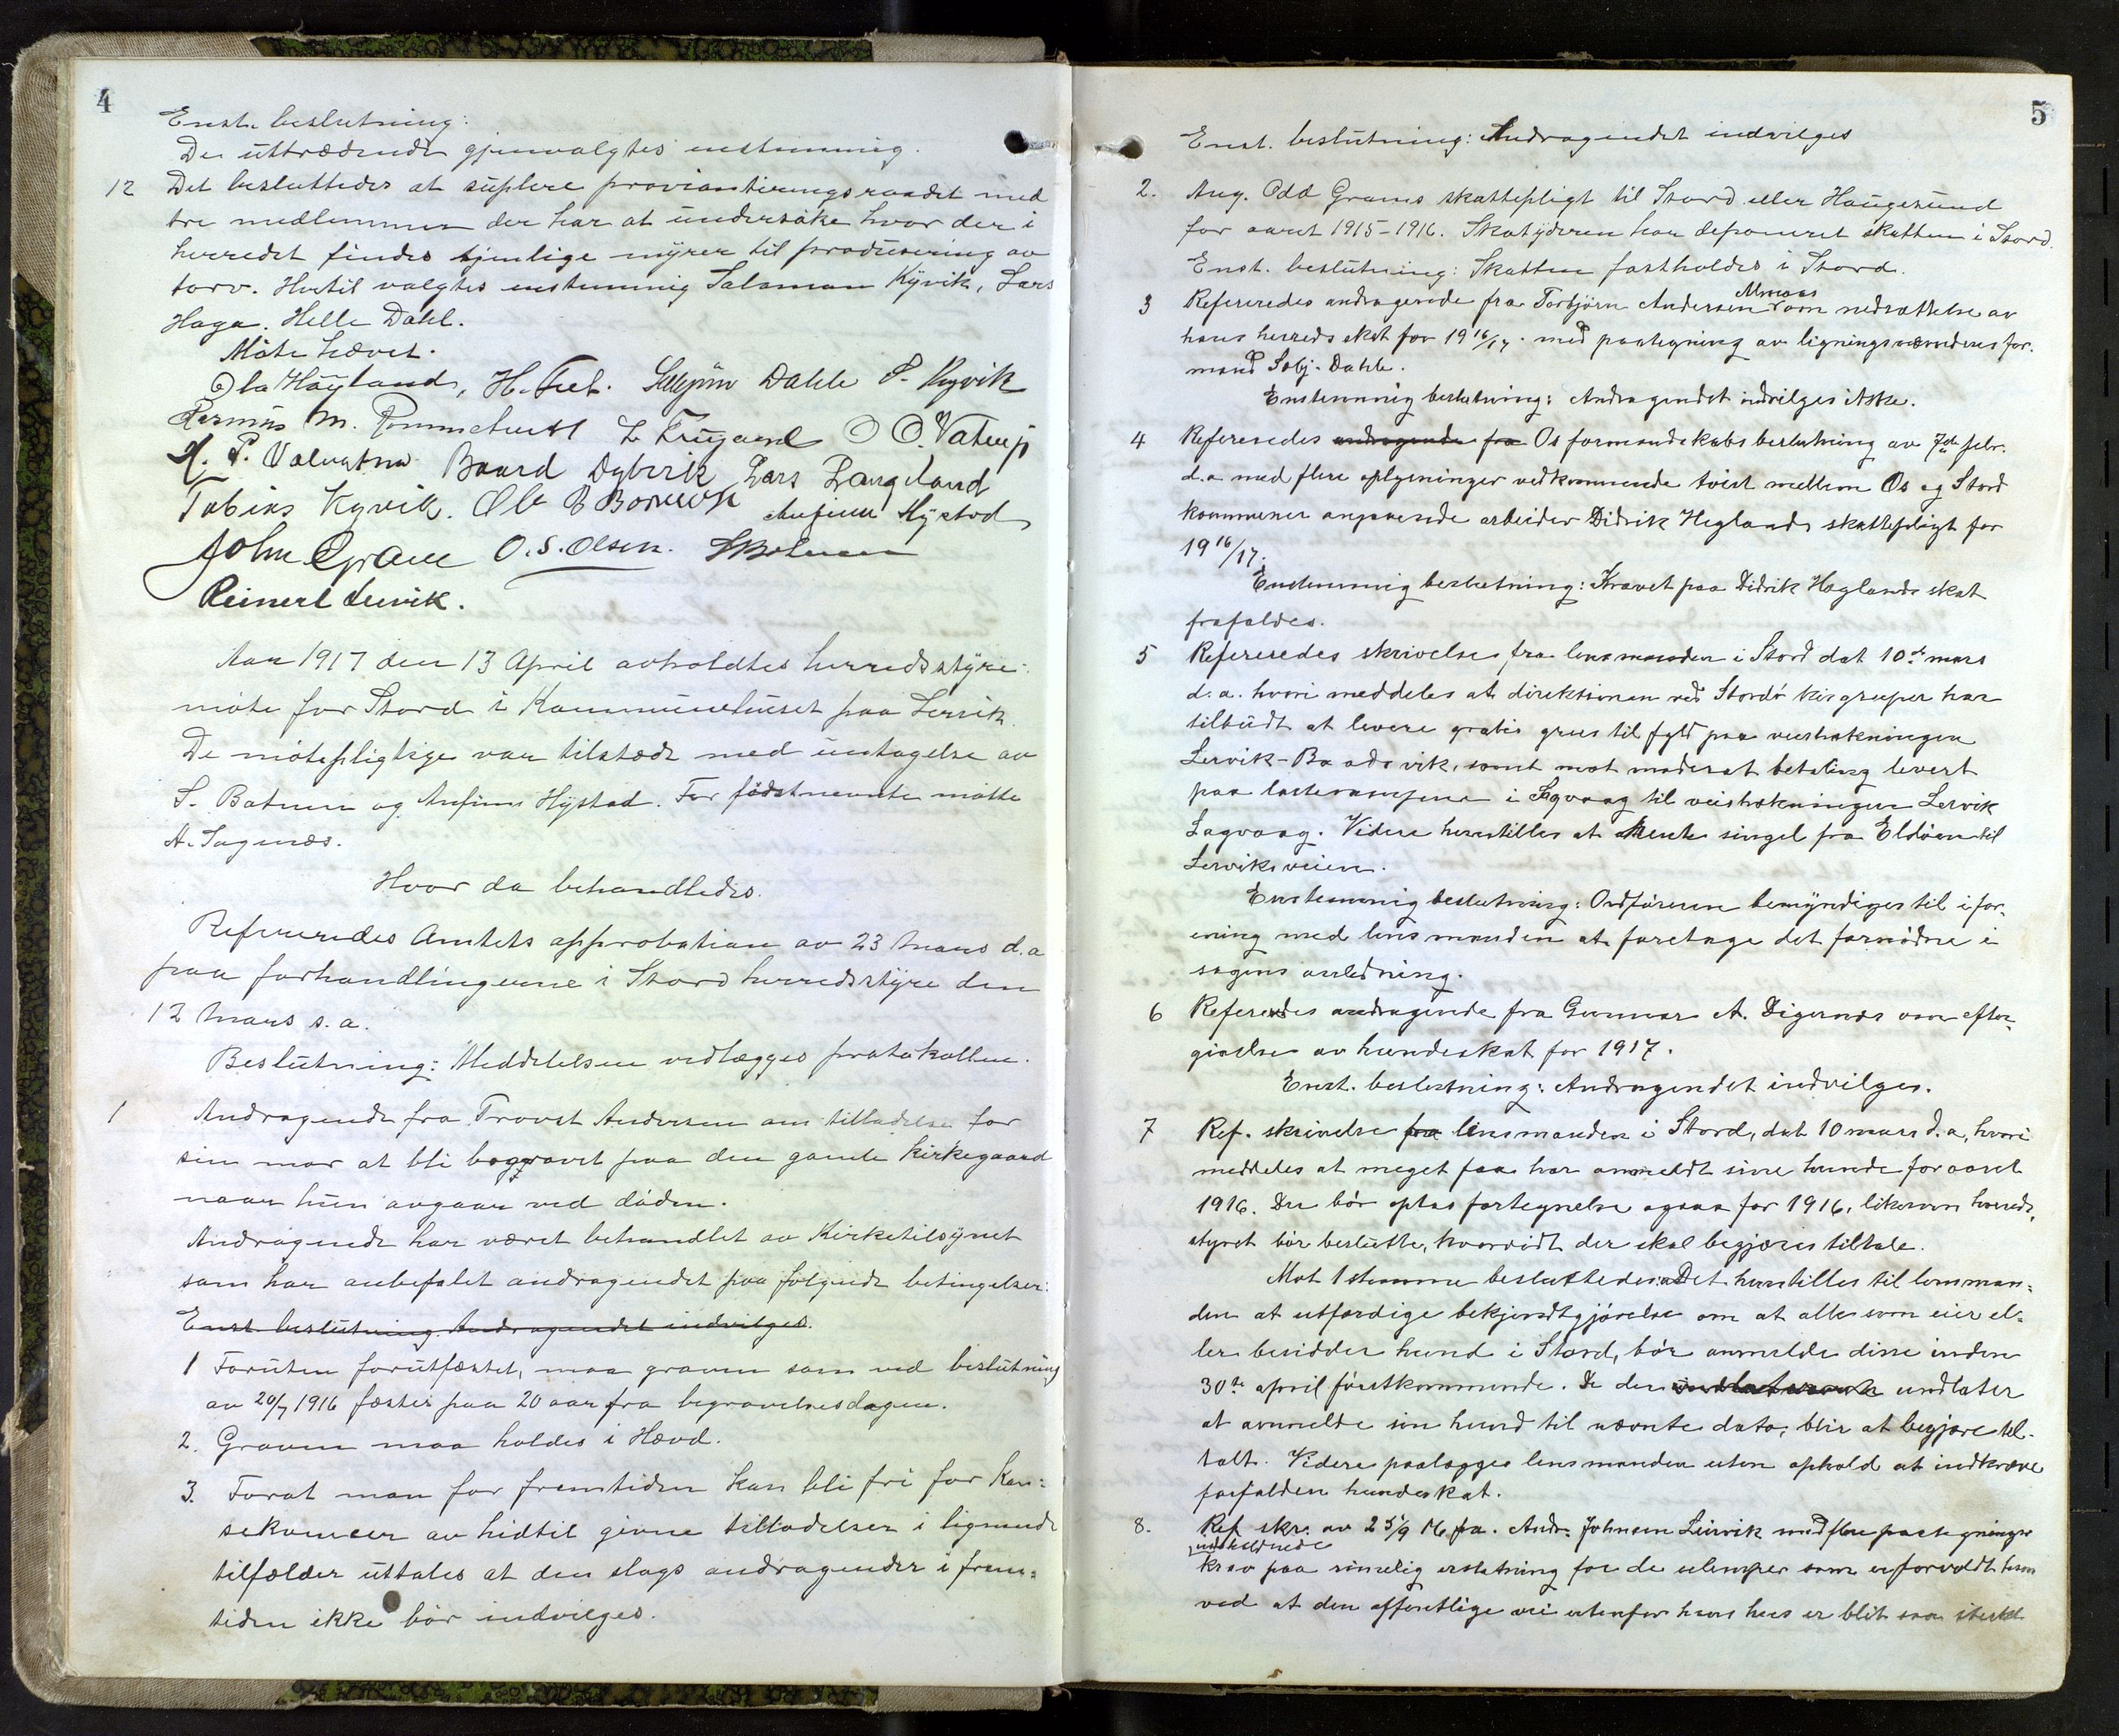 4
Enst. beslutning:
De uttrædende gjenvalgtes enstemmig.
12 Det besluttedes at suplere provianteringsraadet med
tre medlemmer der har at undersøke hvor der i
herredet findes tjenlige myrer til produsering av
torv. Hertil valgtes enstemmig Salamon Kyvik, Lars
Haga. Helle Dahl.
Møte hævet.
Ola Høyland, H. Dahle S. Kyvik
Rasmus M. O. O. Vatnup
Baard Dybvik Lars Langeland
Tobias Kyvik. Ole B Borevik Anfinn Hystad
John Gram O. S. Olsen.
Reinert Leirvik.
Aar 1917 den 13 April avholdtes herredsstyre-
møte for Stord i Kommunehuset paa Lervik.
De møtepligtige var tilstæde med untagelse av
S. Batmen og Anfinn Hystad. For førstnevnte møtte
A. Sagnæs.
Hvor da behandledes.
Refereredes Amtets approbation av 23 Mars d.a
paa forhandlingerne i Stord herredsstyre den
12 Mars s.a.
Beslutning: Meddelelsen vedlægges protokollen.
1 Andragende fra Provst Andersen om tilladelse for
sin mor at bli begravet paa den gamle Kirkegaard
naar hun avgaar ved døden.
Andragende har været behandlet av Kirketilsynet
som har anbefalet andragendet paa følgende betingelser:
Enst. beslutning. Andragendet indvilges.
1 Foruten forutfæstet, maa graven som ved beslutning
av 20/7 1916 fæstes paa 20 aar fra begravelsesdagen.
2. Graven maa holdes i Hævd.
3. Forat man for fremtiden kan bli fri for Kon=
sekvenser av hidtil givne tilladelser i lignende
tilfælder uttales at den slags andragender i frem=
tiden ikke bør indvilges.
5
Enst. beslutning: Andragendet indvilges
2. Ang. Odd Grams skattepligt til Stord eller Haugesund
for aaret 1915-1916. Skatyderen har deponeret skatten i Stord.
Enst. beslutning: Skatten fastholdes i Stord.
Almaas
3 Refereredes andragende fra Torbjørn Andersen om nedsættelse av
hans herredsskat for 1916/17. med paategning av ligningsnævndens for-
mand Sebj. Dahle.
Enstemmig beslutning: Andragendet indvilges ikke.
4 Refereredes andragende fra Os formandskabs beslutning av 7de febr.
d.a med flere oplysninger vedkommende tvist mellem Os og Stord
kommuner angaaende arbeider Didrik Heglands skattepligt for
1916/17.
Enstemmig beslutning: Kravet paa Didrik Heglands skat
frafaldes.
5 Refereredes skrivelse fra lensmanden i Stord dat 10de mars
d.a. hvori meddeles at direktionen ved Stordø kisgruper har
tilbudt at levere gratis grus til fyld paa veistrækningen
Lervik-Baadsvik, samt mot moderat betaling levert
paa lasterampene i Sagvaag til veistrækningen Lervik
Sagvaag. Videre henstilles at skeute singel fra Eldøen til
Lerviksveien.
Enstemmig beslutning: Ordføreren bemyndiges til i for-
ening med lensmanden at foretage det fornødne i
sagens anledning.
6 Refereredes andragende fra Gunnar A. Digernæs om efter-
givelse av hundeskat for 1917.
Enst. beslutning: Andragendet indvilges.
7 Ref. skrivelse fra lensmanden i Stord, dat 10 mars d.a, hvori
meddeles at meget faa har anmeldt sine hunde for aaret
1916. Der bør optas fortegnelse ogsaa for 1916, likesom herreds-
styret bør beslutte, hvorvidt der skal begjæres tiltale.
Mot 1 stemme besluttedes: Det henstilles til lensman=
den at utfærdige bekjendtgjørelse om at alle som eier el=
ler besidder hund i Stord, bør anmelde disse inden
30te april førstkommende. De der undlater
at anmelde sin hund til nævnte dato, blir at begjære til-
talt. Videre paalægges lensmanden uten ophold at indkræve
forfalden hundeskat.
8. Ref. skr. av 25/9 16 fra Andr. Johnsen Leirvik med flere paategninger
indeholdende
krav paa rimelig erstatning for de ulemper som er forvoldt ham
ved at den offentlige vei utenfor hans hus er blit saa sterkt